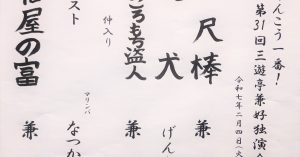 んこう一番!
第31回三遊亭兼好独演
令和七年二月四日(火
尺棒 兼
犬 げん
ろもち盗人 兼
仲入り
スト マリンバ なつか
屋の富 兼